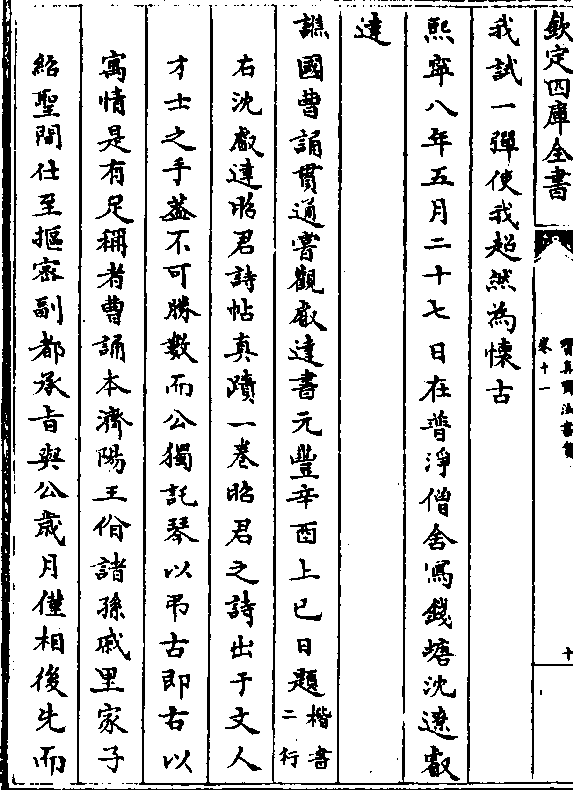 欽定四庫全書
寶真齋法書贊
卷十一
十
我試一彈使我超然為懷古
熙寧八年五月二十七日在普淨僧舍寫錢塘沈遼叡
達
譙國曹誦貫道嘗觀叡達書元豐辛酉上巳日題楷書二行
右沈叡達昭君詩帖真蹟一卷昭君之詩出于文人
才士之手葢不可勝數而公獨託琴以弔古即右以
寓情是有足稱者曹誦本濟陽王佾諸孫戚里家子
紹聖間仕至樞密副都承旨與公歲月僅相後先而